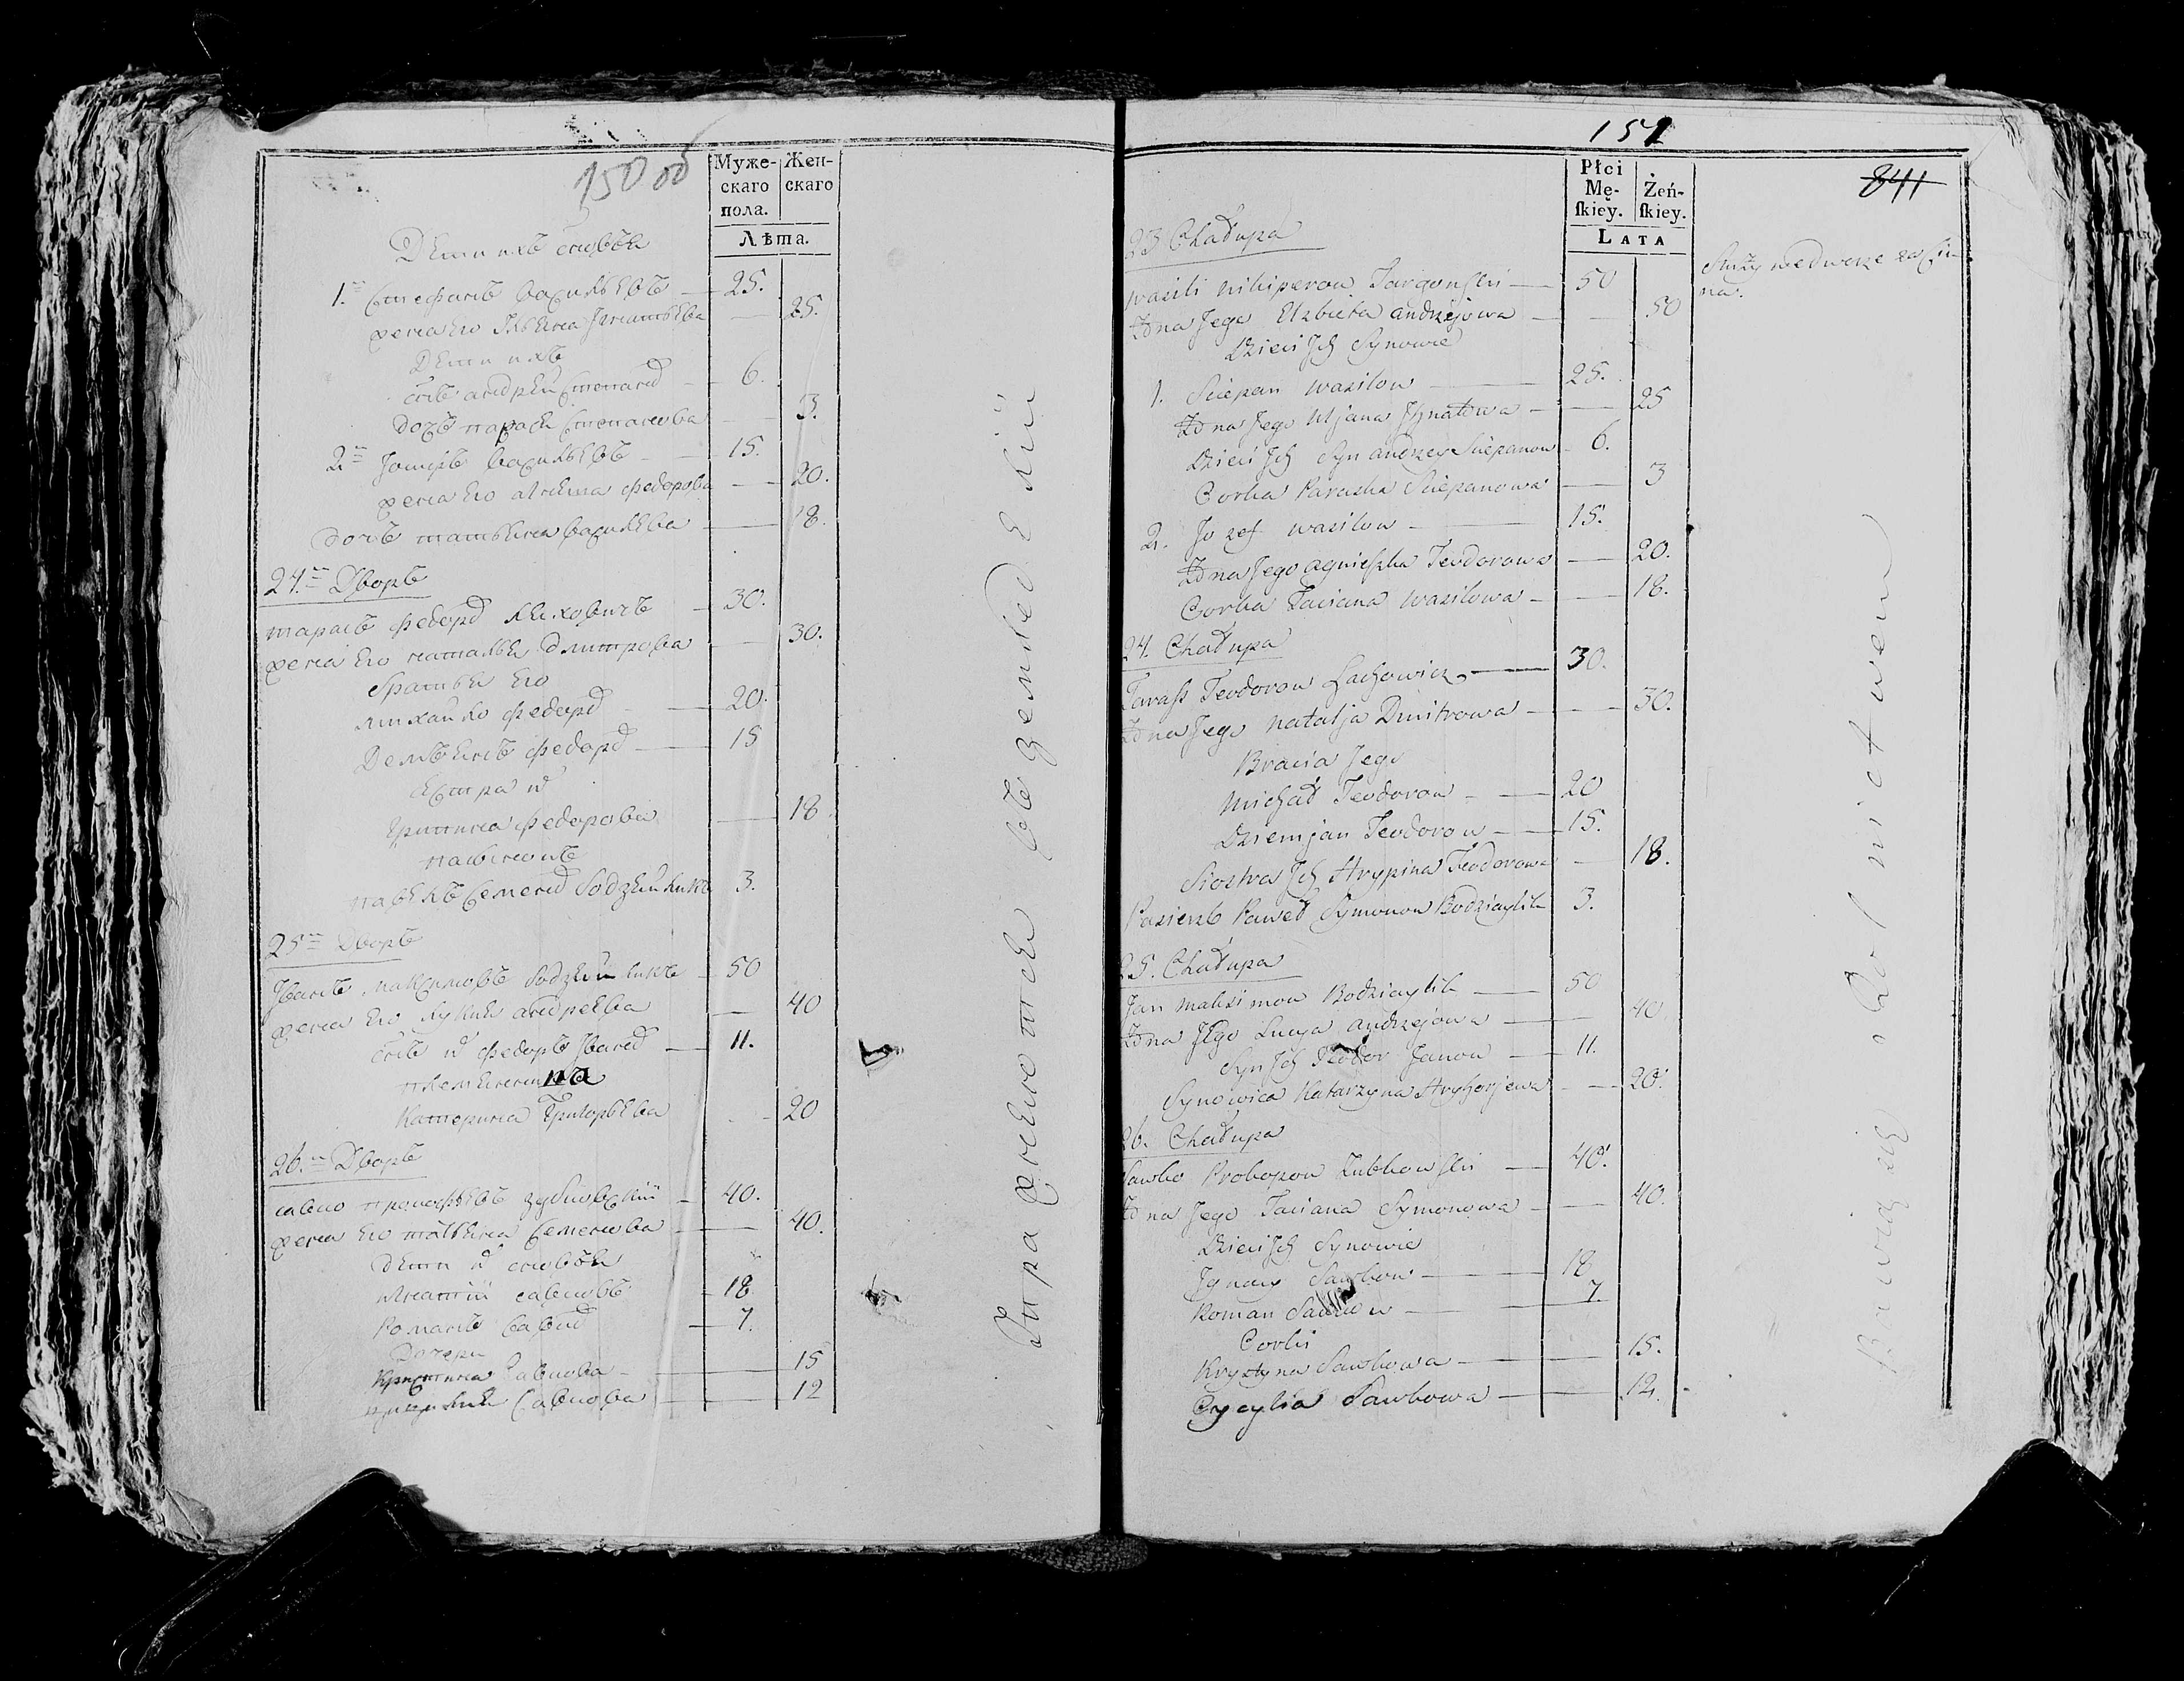 150 об
Муже-
скаго
пола.
Жен-
скаго
Лѣта.
Дети ихъ сновья
1. Стефанъ Васильевъ 25.
жена его Ульяна Игнатьева 25.
Дети ихъ
снъ андрей Степанов 6.
дочь парася Степанова 3.
2. Іосифъ Васильевъ 15.
жена его агнеша Федорова 20.
дочь татьяна Васильева 18.
24. Дворъ
тарасъ Федоров ляховичъ 30.
жена его наталья Дмитрова 30.
братья его
михайло Федоров 20.
Демьянъ Федоров 15
сестра их
Грипина Федорова 18
пасынокъ
павелъ Семенов бодзяйликъ 3.
25 Дворъ
Иванъ Максимовъ бодзяйликъ 50
жена его лукия андреева 40
снъ их Федоръ Иванов 11.
племяненица
Катерина Григорьева 20
26. Дворъ
савко прокофьевъ зубковский 40.
жена его татьяна Семенова 40.
Дети их сновья
игнатий савковъ 18
Романъ Савков 7.
Дочери
Кристина Савкова 15
Савкова 12
151
841
Płci
Mę-
skiey.
Żeń-
skiey.
LATA
23 Chałupa
wasili nikiperow Targonski 50
Żona Jego Elzbieta andrzejowa 50
Dzieci Jch Synowie
1. Sciepan wasilow 25.
Żona Jego Uljana Jhnatowa 25
Dzieci Jch Syn andrzey Sciepanow 6.
Corka Paraska Sciepanowa 3
2. Jozef wasilow 15.
Żona Jego agnieszka Teodorowa 20.
Corka Taciana wasilowa 18.
24. Chałupa
Tarass Teodorow Lachowicz 30.
Żona Jego natalja Dmitrowa 30.
Bracia Jego
Michał Teodorow 20
Dziemjan Teodorow 15.
Siostra Jch Hrypina Teodorowa 18.
Pasierb Paweł Symonow Bodziaylik 3.
25. Chałupa
Jan Maksimow Bodziaylik 50
Żona Jego Lucya andrzejowa 40
Syn Jch Teodor Janow 11.
Synowica Katarzyna Hryhorjewa 20.
26. Chałupa
Sawko Prokopow Zubkowski 40.
Żona Jego Taciana Symonowa 40.
Dzieci Jch Synowie
Jgnacy Sawkow 18
Roman Sawkow 7.
Corki
Krystyna Sawkowa 15.
Cycylia Sawkowa 12.